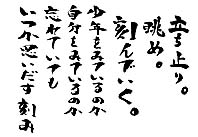 立ち止り。
眺め。
刻んでいく。
少年をみているのか
自分をみているのか
忘れていても
いつか思いだす刻み